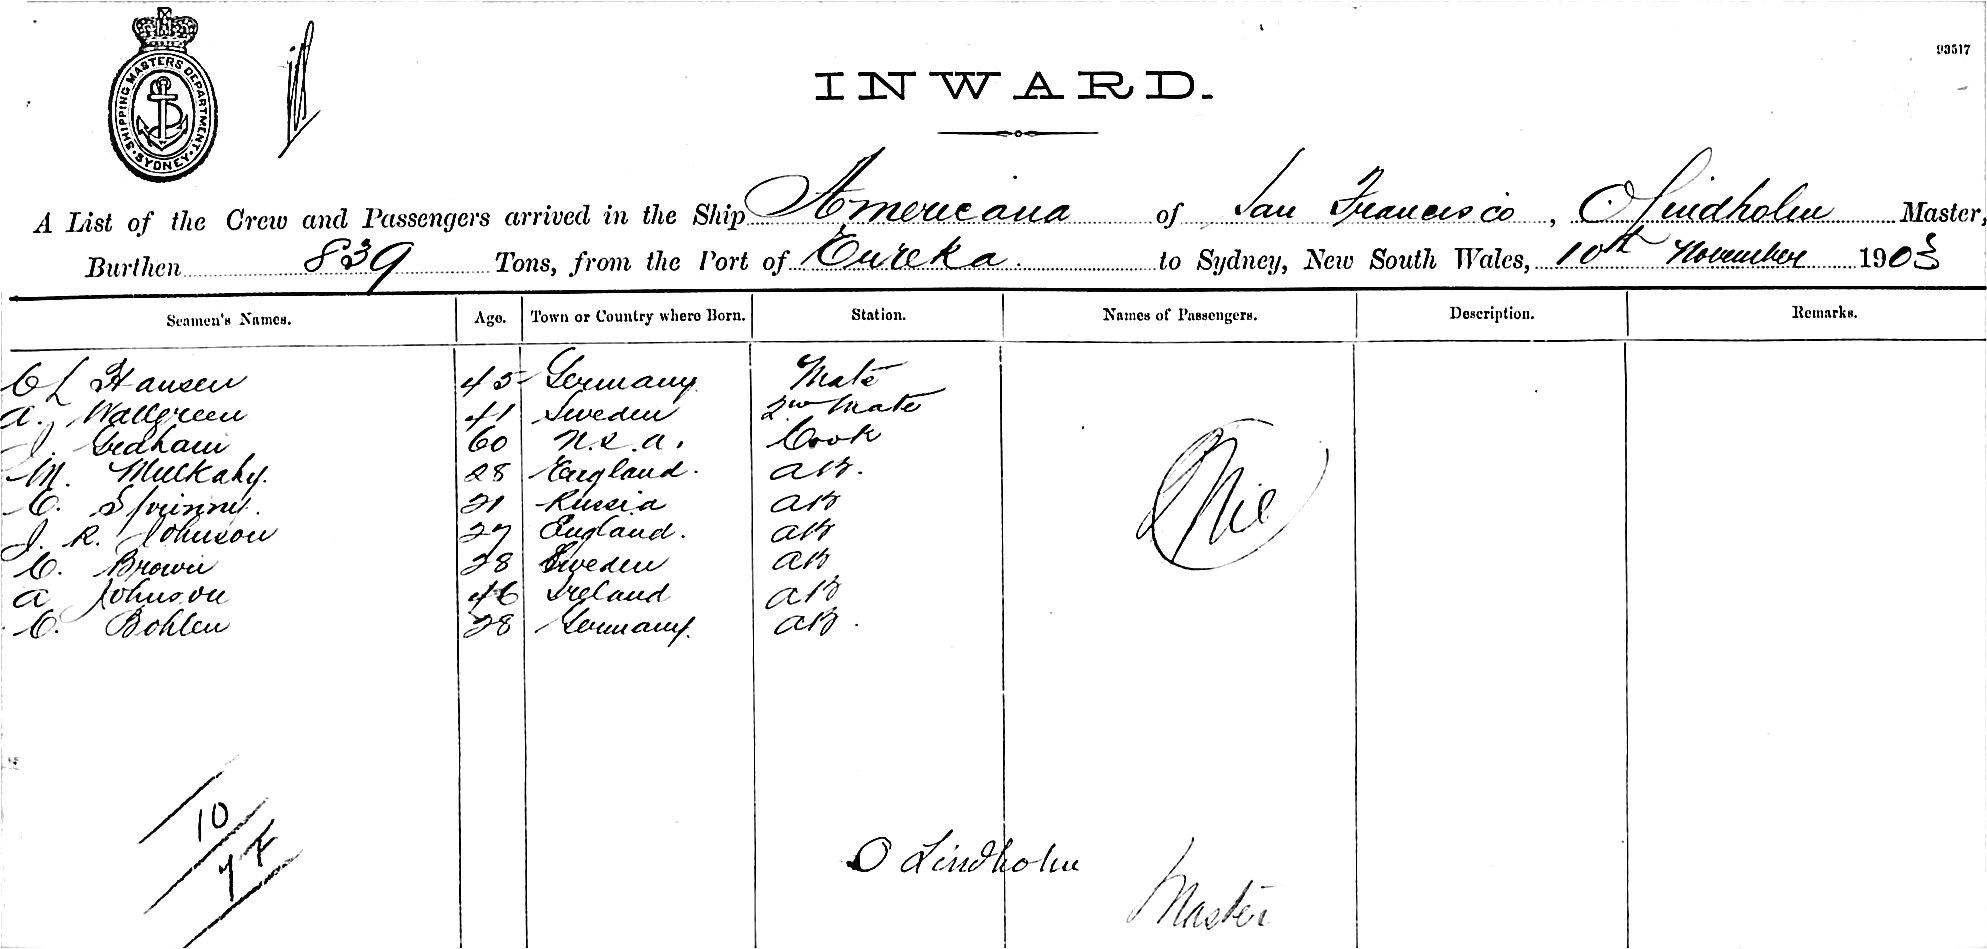 93517
SHIPPING MASTERS DEPARTMENT. SYDNEY
INWARD.
A List of the Crew and Passengers arrived in the Ship Americana of San Francisco, O Lindholm Master,
Burthen 839 Tons, from the Port of Eureka to Sydney, New South Wales, 10th November 1903
Seamen's Names. Age. Town or Country where Born. Station. Names of Passengers. Description. Remarks.
C L Hansen 45 Germany Mate
A. Wallgreen 41 Sweden 2nd Mate
J. 60 U.S.A. Cook
M. Mulkahy. 28 England. AB.
C. 21 Russia AB
J. R. Johnson 27 England. AB
C. Brown 28 Sweden AB
A Johnson 46 Ireland AB
C. Bohlen 28 Germany. AB.
Nil
10
7F
O Lindholm
Master